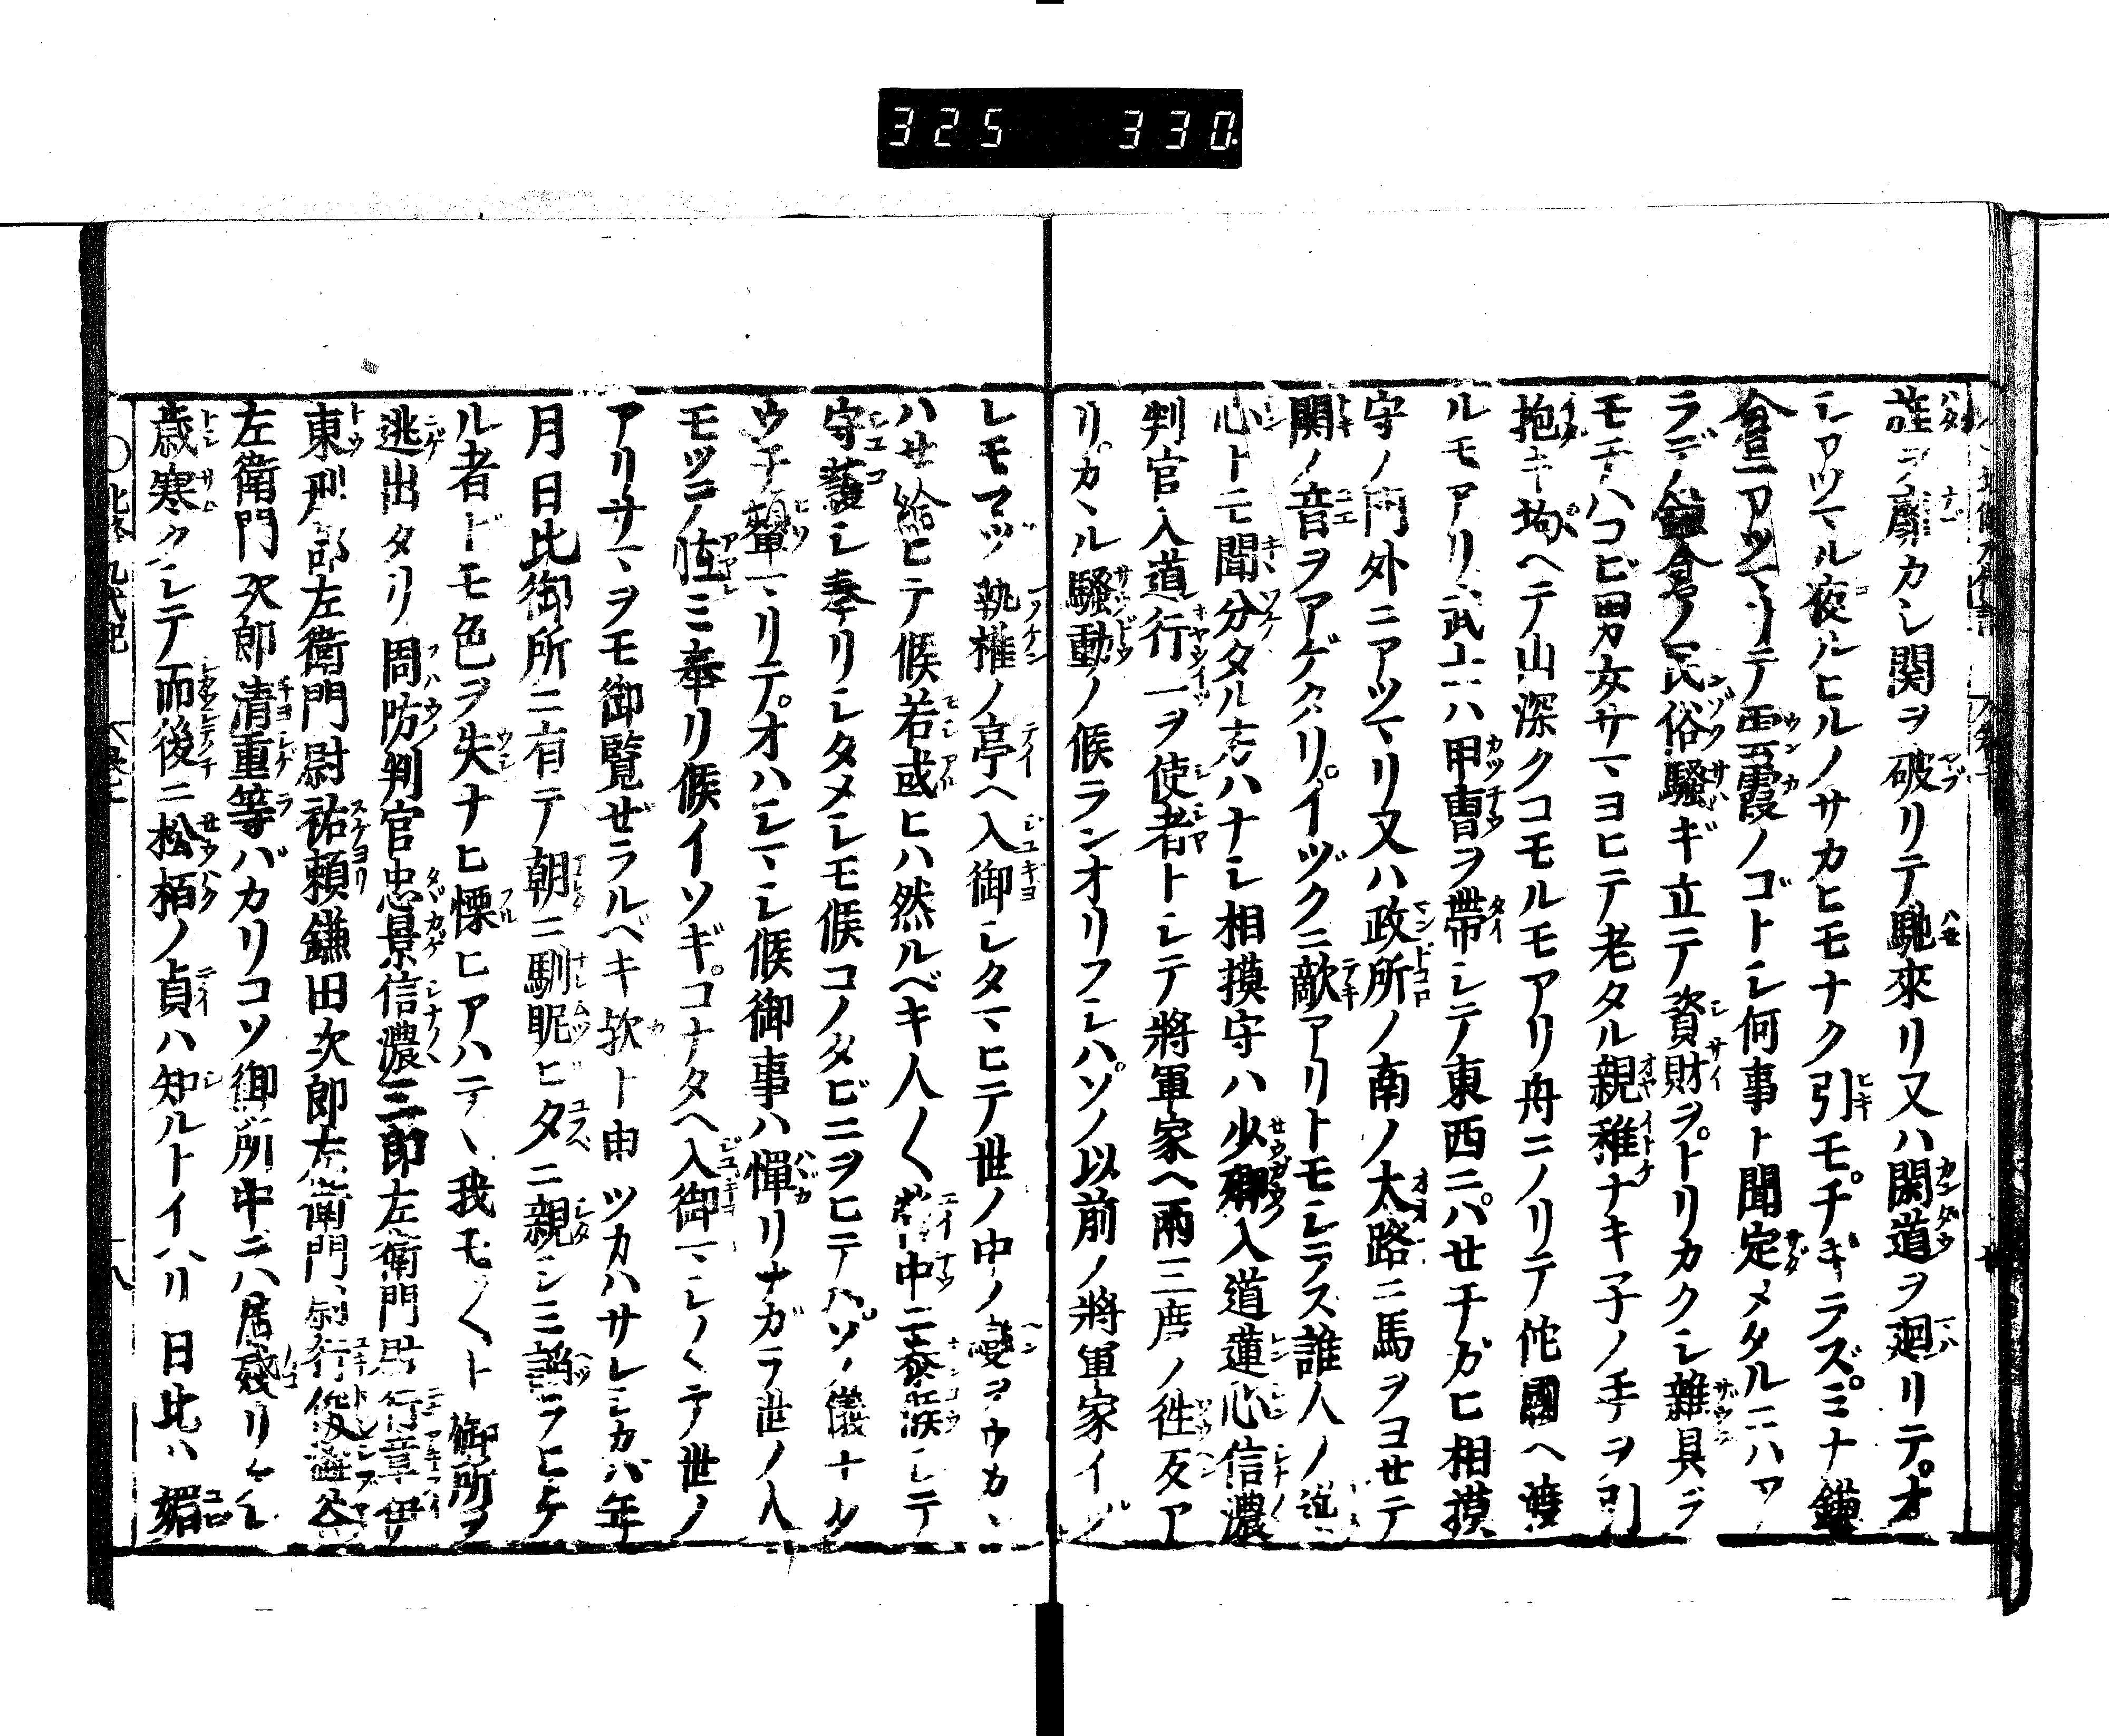 325 330.
旌ヲ靡カシ関ヲ破リテ馳來リ又ハ閑道ヲ廻リテオ
シアツマル夜ルヒルノサカヒモナク引モチギラズミナ鎌
倉ニアツマリテ雲霞ノゴトシ何事ト聞定メタルニハア
ラデノ鎌倉ノ民俗騒ギ立テ資財ヲトリカクシ雜具ヲ
モチハコビ男女サマヨヒテ老タル親稚ナキ子ノ手ヲ引
抱キ拘ヘテ山深クコモルモアリ舟ニノリテ佗國ヘ渡
ルモアリ武士ハ甲冑ヲ帶シテ東西ニハセチガヒ相摸
守ノ門外ニアツマリ又ハ政所ノ南ノ大路ニ馬ヲヨセテ
関ノ音ヲアゲタリイヅクニ敵アリトモシラス誰人ノ
心トモ聞分タル方ハナシ相摸守ハ少卿入道蓮心信濃
判官入道行一ヲ使者トシテ將軍家ヘ兩三度ノ徃反ア
リカヽル騒動ノ候ランオリフシハソノ以前ノ將軍家イヅ
レモマヅ執権ノ亭ヘ入御シタマヒテ世ノ中ノ變ヲウカヽ
ハせ給ヒテ候若或ヒハ然ルベキ人〱營中ニ參候シテ
守護シ奉リシタメシモ候コノタビニヲヒテハソノ儀ナル
ウチ顰マリテオハシマシ候御事ハ憚リナガラ世ノ人
モツテノ恠ミ奉リ候イソギコナタヘ入御マシ〱テ世ノ
アリサマヲモ御覧ぜラルベキ欤ト申ツカハサレシカバ年
月日比御所ニ有テ朝ニ馴昵ビタニ親シミ諂ラヒケ
ル者ドモ色ヲ失ナヒ慄ヒアハテヽ我モ〱ト御所ヲ
逃出タリ周防判官忠景信濃三郎左衛門尉行章伊
東刑部左衛門尉祐頼鎌田次郎左衛門尉行俊澁谷
左衛門次郎清重等バカリコソ御所中ニハ居殘リケレ
歳寒クシテ而後ニ松栢ノ貞ハ知ルトイハリ日比ハ媚